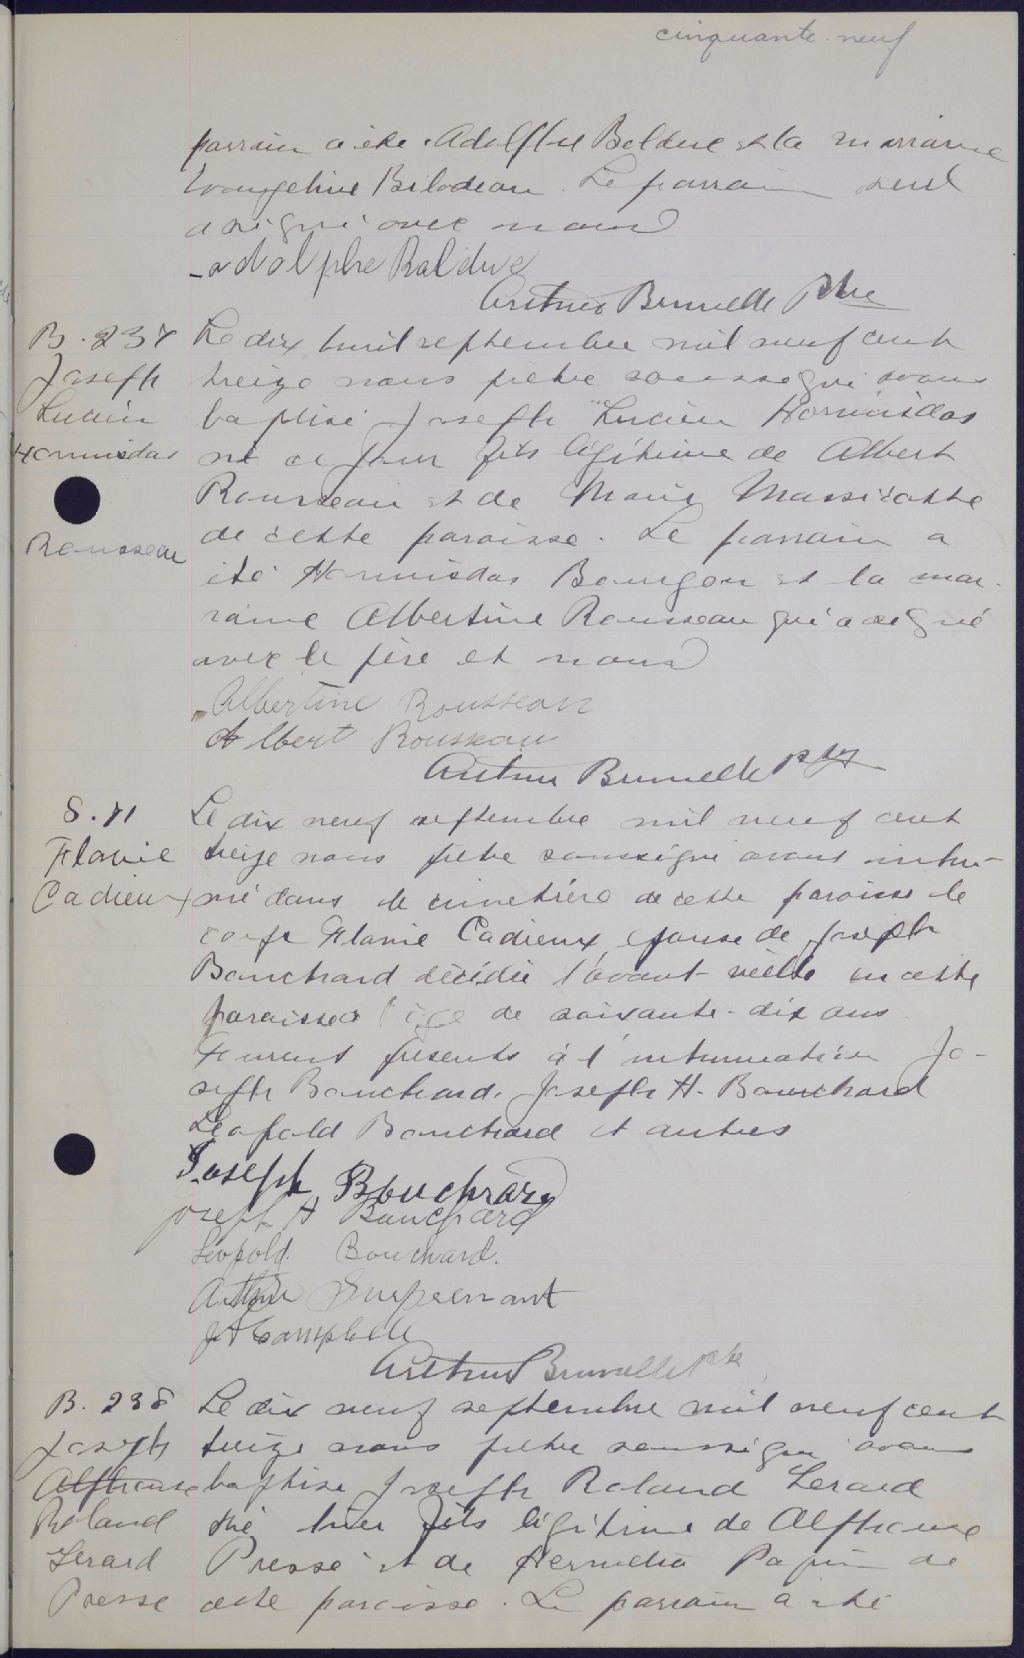 cinquante-neuf
parrain a été Adolphe Bolduc et la marraine
Evangeline Bilodeau. Le parrain seul
a signé avec nous
Adolphe Balduc
Arthur Brunelle Ptre
B. 237
Joseph
Lucien
Hormisdas
Rousseau
Le dix huit septembre mil neuf cent
treize nous prêtre soussigné avons
baptisé Joseph Lucien Hormisdas
né ce jour fils légitime de Albert
Rousseau et de Marie Massicotte
de cette paroisse. Le parrain a
été Hormisdas Bourgon et la mar-
raine Albertine Rousseau qui a signé
avec le père et nous
Albertine Rousseau
Albert Rousseau
Arthur Brunelle Ptre
S. 71
Flavie
Cadieux
Le dix neuf septembre mil neuf cent
treize nous prêtre soussigné avons inhu-
mé dans le cimetière de cette paroisse le
corps Flavie Cadieux épouse de Joseph
Bouchard décédée l'avant-veille en cette
paroisse à l'âge de soixante-dix ans
Furent présents à l'inhumation Jo-
seph Bouchard, Joseph H. Bouchard
Léopold Bouchard et autres
Joseph Bouchard
Joseph H Bouchard
Léopold Bouchard.
Arthur Surprenant
J A Campbell
Arthur Brunelle Ptre
B. 238
Joseph
Alphonse
Roland
Gerard
Presse
Le dix neuf septembre mil neuf cent
treize nous prêtre soussigné avons
baptisé Joseph Roland Gerard
né hier fils légitime de Alphonse
Presse et de Hermelia Papin de
cette paroisse. Le parrain a été